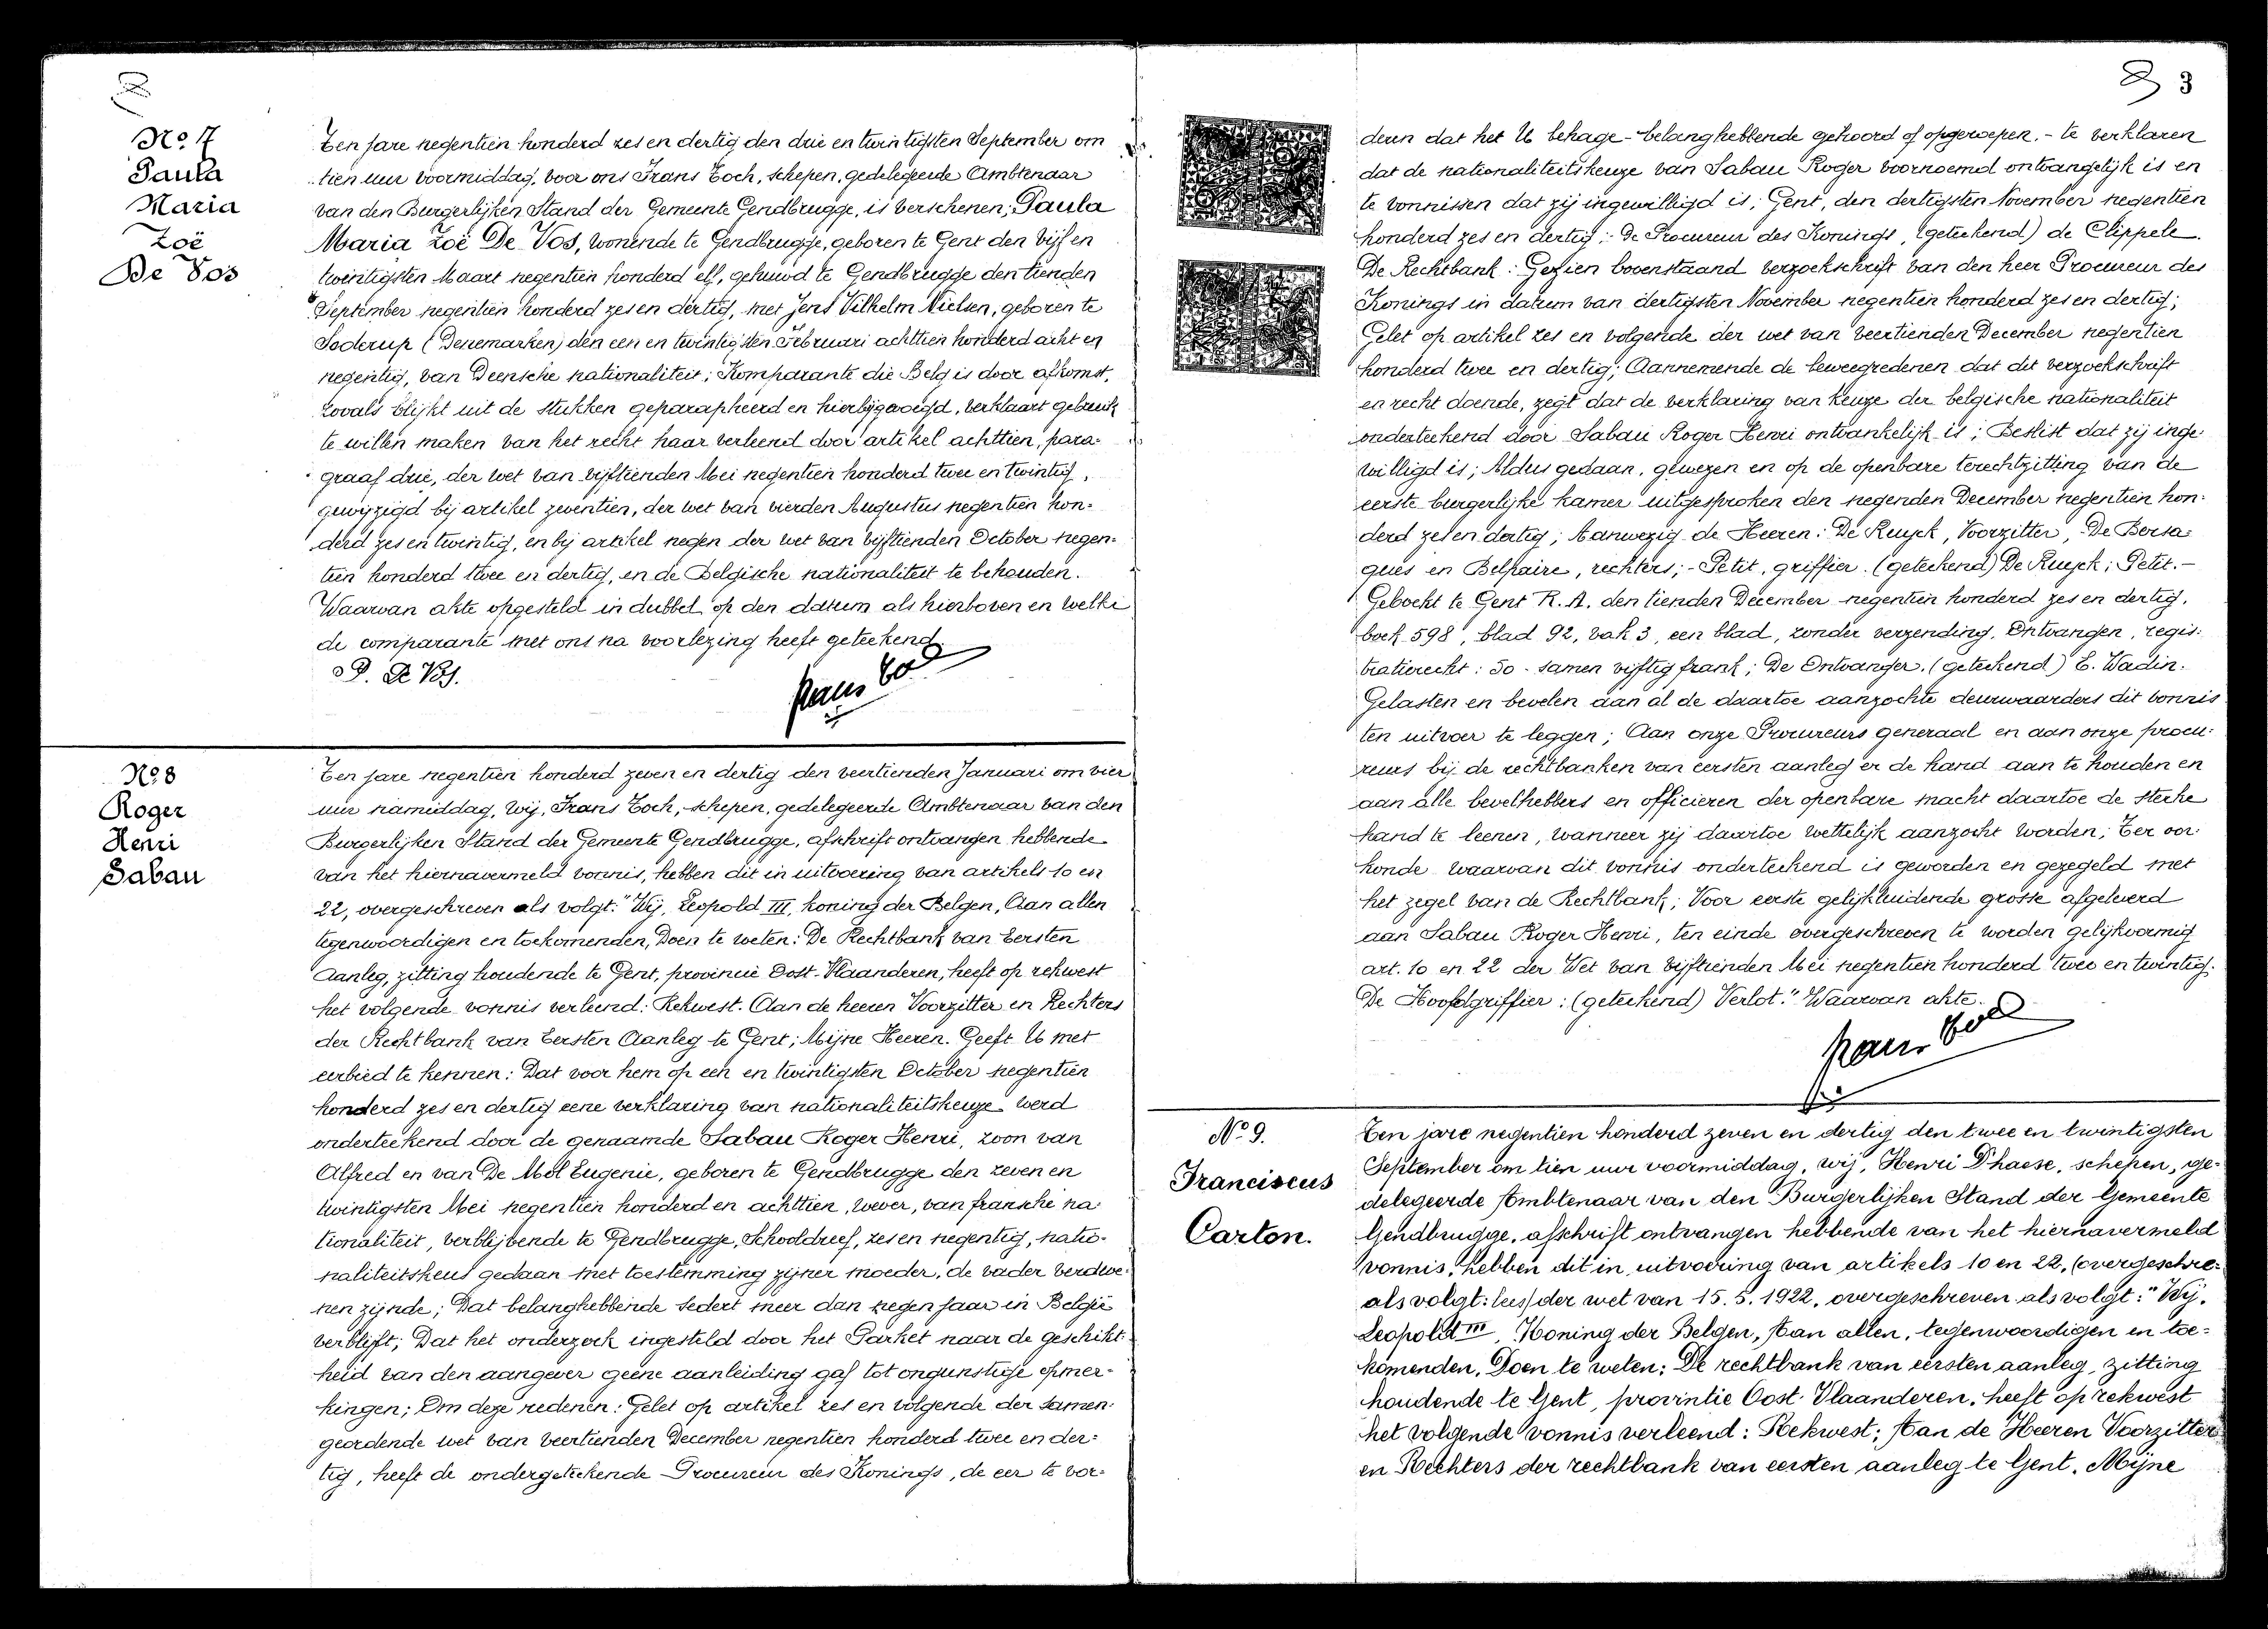 No. 7
Paula
Maria
Zoë
De Vos
Ten jare negentien honderd zes en dertig den drie en twintigsten September om
tien uur voormiddag, voor ons Frans Toch, schepen, gedelegeerde Ambtenaar
van den Burgerlijken Stand der Gemeente Gendbrugge, is verschenen; Paula
Maria Zoë De Vos, wonende te Gendbrugge, geboren te Gent den vijf en
twintigsten Maart negentien honderd elf, gehuwd te Gendbrugge den tienden
September negentien honderd zes en dertig, met Jens Vilhelm Nielsen, geboren te
Soderup (Denemarken) den een en twintigsten Februari achttien honderd acht en
negentig, van Deensche nationaliteit; Komparante die Belg is door afkomst,
zooals blijkt uit de stukken geparapheerd en hierbijgevoegd, verklaart gebruik
te willen maken van het recht haar verleend door artikel achttien, para-
graaf drie, der wet van vijftienden Mei negentien honderd twee en twintig,
gewijzigd bij artikel zeventien, der wet van vierden Augustus negentien hon-
derd zes en twintig, en bij artikel negen der wet van vijftienden October negen-
tien honderd twee en dertig, en de Belgische nationaliteit te behouden.
Waarvan akte opgesteld in dubbel op den datum als hierboven en welke
de comparante met ons na voorlezing heeft geteekend.
P. De Vos.
No. 8
Roger
Henri
Sabau
Ten jare negentien honderd zeven en dertig den veertienden Januari om vier
uur namiddag, Wij, Frans Toch, schepen, gedelegeerde Ambtenaar van den
Burgerlijken Stand der Gemeente Gendbrugge, afschrift ontvangen hebbende
van het hiernavermeld vonnis, hebben dit in uitvoering van artikels 10 en
22, overgeschreven als volgt: "Wij, Leopold III, koning der Belgen, Aan allen
tegenwoordigen en toekomenden, Doen te weten: De Rechtbank van Eersten
Aanleg, zitting houdende te Gent, provincie Oost-Vlaanderen, heeft op rekwest
het volgende vonnis verleend: Rekwest. Aan de heeren Voorzitter en Rechters
der Rechtbank van Eersten Aanleg te Gent; Mijne Heeren. Geeft U met
eerbied te kennen: Dat voor hem op een en twintigsten October negentien
honderd zes en dertig eene verklaring van nationaliteitskeuze werd
onderteekend door de genaamde Sabau Roger Henri, zoon van
Alfred en van De Mol Eugenie, geboren te Gendbrugge den zeven en
twintigsten Mei negentien honderd en achttien, wever, van fransche na
tionaliteit, verblijvende te Gendbrugge, Schooldreef, zes en negentig, natio-
naliteitskeus gedaan met toestemming zijner moeder, de vader verdwe-
nen zijnde; Dat belanghebbende sedert meer dan negen jaar in België
verblijft; Dat het onderzoek ingesteld door het Parket naar de geschikt-
heid van den aangever geene aanleiding gaf tot ongunstige opmer-
kingen; Om deze redenen: Gelet op artikel zes en volgende der samen-
geordende wet van veertienden December negentien honderd twee en der-
tig, heeft de ondergeteekende Procureur des Konings, de eer te vor-
3
deren dat het U behage - belanghebbende gehoord of opgeroepen. - te verklaren
dat de nationaliteitskeuze van Sabau Roger voornoemd ontvangelijk is en
te vonnissen dat zij ingewilligd is; Gent, den dertigsten November negentien
honderd zes en dertig; De Procureur des Konings, (geteekend) de Clippele.
De Rechtbank: Gezien bovenstaand verzoekschrift van den heer Procureur des
Konings in datum van dertigsten November negentien honderd zes en dertig;
Gelet op artikel zes en volgende der wet van veertienden December negentien
honderd twee en dertig; Aannemende de beweegredenen dat dit verzoekschrift
en recht doende, zegt dat de verklaring van keuze der belgische nationaliteit
onderteekend door Sabau Roger Henri ontvankelijk is; Beslist dat zij inge-
willigd is; Aldus gedaan, gewezen en op de openbare terechtzitting van de
eerste burgerlijke kamer uitgesproken den negenden December negentien hon-
derd zes en dertig; Aanwezig de Heeren: De Ruyck, Voorzitter, De Bersa-
ques en Belpaire, rechters; - Petit, griffier. (geteekend) De Ruyck; Petit. -
Geboekt te Gent R. A. den tienden December negentien honderd zes en dertig,
boek 598, blad 92, vak 3, een blad, zonder verzending. Ontvangen, regis-
tratierecht: 50. samen vijftig frank; De Ontvanger. (geteekend) E. Wadin.
Gelasten en bevelen aan al de daartoe aanzochte deurwaarders dit vonnis
ten uitvoer te leggen; Aan onze Procureurs generaal en aan onze procu-
reurs bij de rechtbanken van eersten aanleg er de hand aan te houden en
aan alle bevelhebbers en officieren der openbare macht daartoe de sterke
hand te leenen, wanneer zij daartoe wettelijk aanzocht worden; Ter oor-
konde waarvan dit vonnis onderteekend is geworden en gezegeld met
het zegel van de Rechtbank; Voor eerste gelijkluidende grosse afgeleverd
aan Sabau Roger Henri, ten einde overgeschreven te worden gelijkvormig
art. 10 en 22 der Wet van vijftienden Mei negentien honderd twee en twintig.
De Hoofdgriffier: (geteekend) Verlot." Waarvan akte.
No. 9.
Franciscus
Carton.
Ten jare negentien honderd zeven en dertig den twee en twintigsten
September om tien uur voormiddag, wij, Henri D'haese, schepen, ge-
delegeerde Ambtenaar van den Burgerlijken Stand der Gemeente
Gendbrugge, afschrift ontvangen hebbende van het hiernavermeld
vonnis, hebben dit in uitvoering van artikels 10 en 22, (overgeschre-
als volgt: lees) der wet van 15.5.1922, overgeschreven als volgt: "Wij,
Leopold III, Koning der Belgen, Aan allen, tegenwoordigen en toe-
komenden, Doen te weten: De rechtbank van eersten aanleg, zitting
houdende te Gent, provintie Oost-Vlaanderen, heeft op rekwest
het volgende vonnis verleend: Rekwest; Aan de Heeren Voorzitter
en Rechters der rechtbank van eersten aanleg te Gent. Mijne